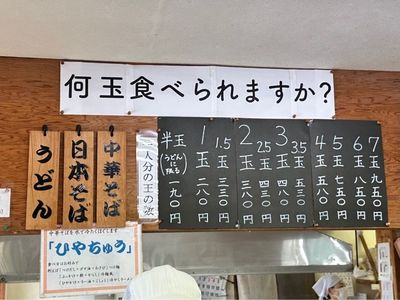 何玉食べられますか?
うどん
日本そば
中華そば
一人分の玉の数
半玉 (うどんに限る) 一九〇円
1玉 二八〇円
1.5玉 三三〇円
2玉 三八〇円
2.5玉 四三〇円
3玉 四八〇円
3.5玉 五三〇円
4玉 五八〇円
5玉 七五〇円
6玉 八五〇円
7玉 九五〇円
中華そばを水で冷たくほぐします
「ひやちゅう」